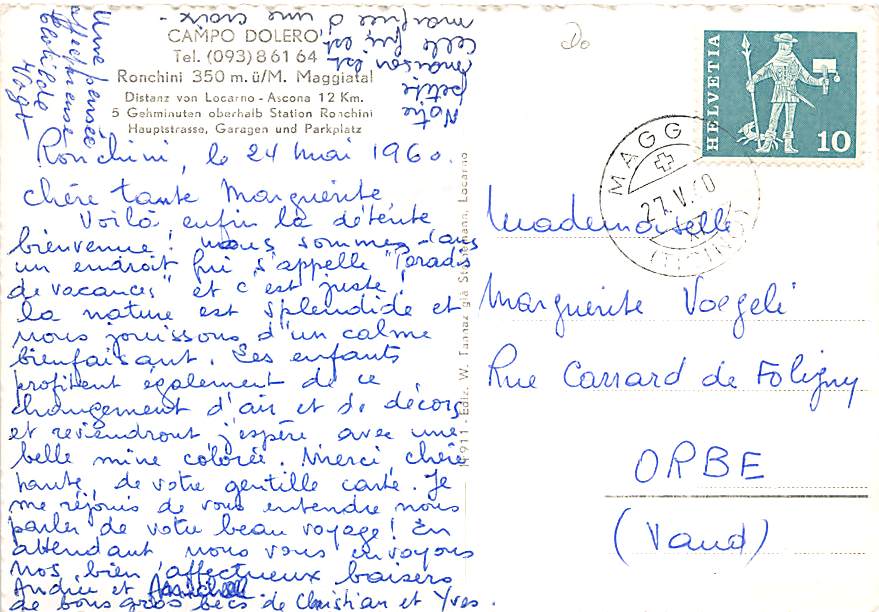 CAMPO DOLERO
Tel. (093) 8 61 64
Ronchini 350 m. ü/M. Maggiatal
Distanz von Locarno - Ascona 12 Km.
5 Gehminuten oberhalb Station Ronchini
Hauptstrasse, Garagen und Parkplatz
Ronchini, le 24 mai 1960.
Chère tante Marguerite,
Voilà enfin la détente
bienvenue! nous sommes dans
un endroit qui s'appelle "Paradis
de vacances" et c'est juste!
la nature est splendide et
nous jouissons d'un calme
bienfaisant. Les enfants
profitent également de ce
changement d'air et de décors
et reviendront j'espère avec une
belle mine colorée. Merci, chère
tante, de votre gentille carte. Je
me réjouis de vous entendre nous
parler de votre beau voyage! En
attendant nous vous envoyons
nos bien affectueux baisers
Andrée et
de bons gros becs de Christian et Yves.
Une pensée
affectueuse
Clotilde
Vogt
Notre
petite
maison est
celle qui est
marquée d'une croix.
911 - Ediz. W. Tannaz già Locarno
HELVETIA
10
MAGG
27.V.60
(TICINO)
Mademoiselle
Marguerite Voegeli
Rue Carrard de Foligny
ORBE
(Vaud)